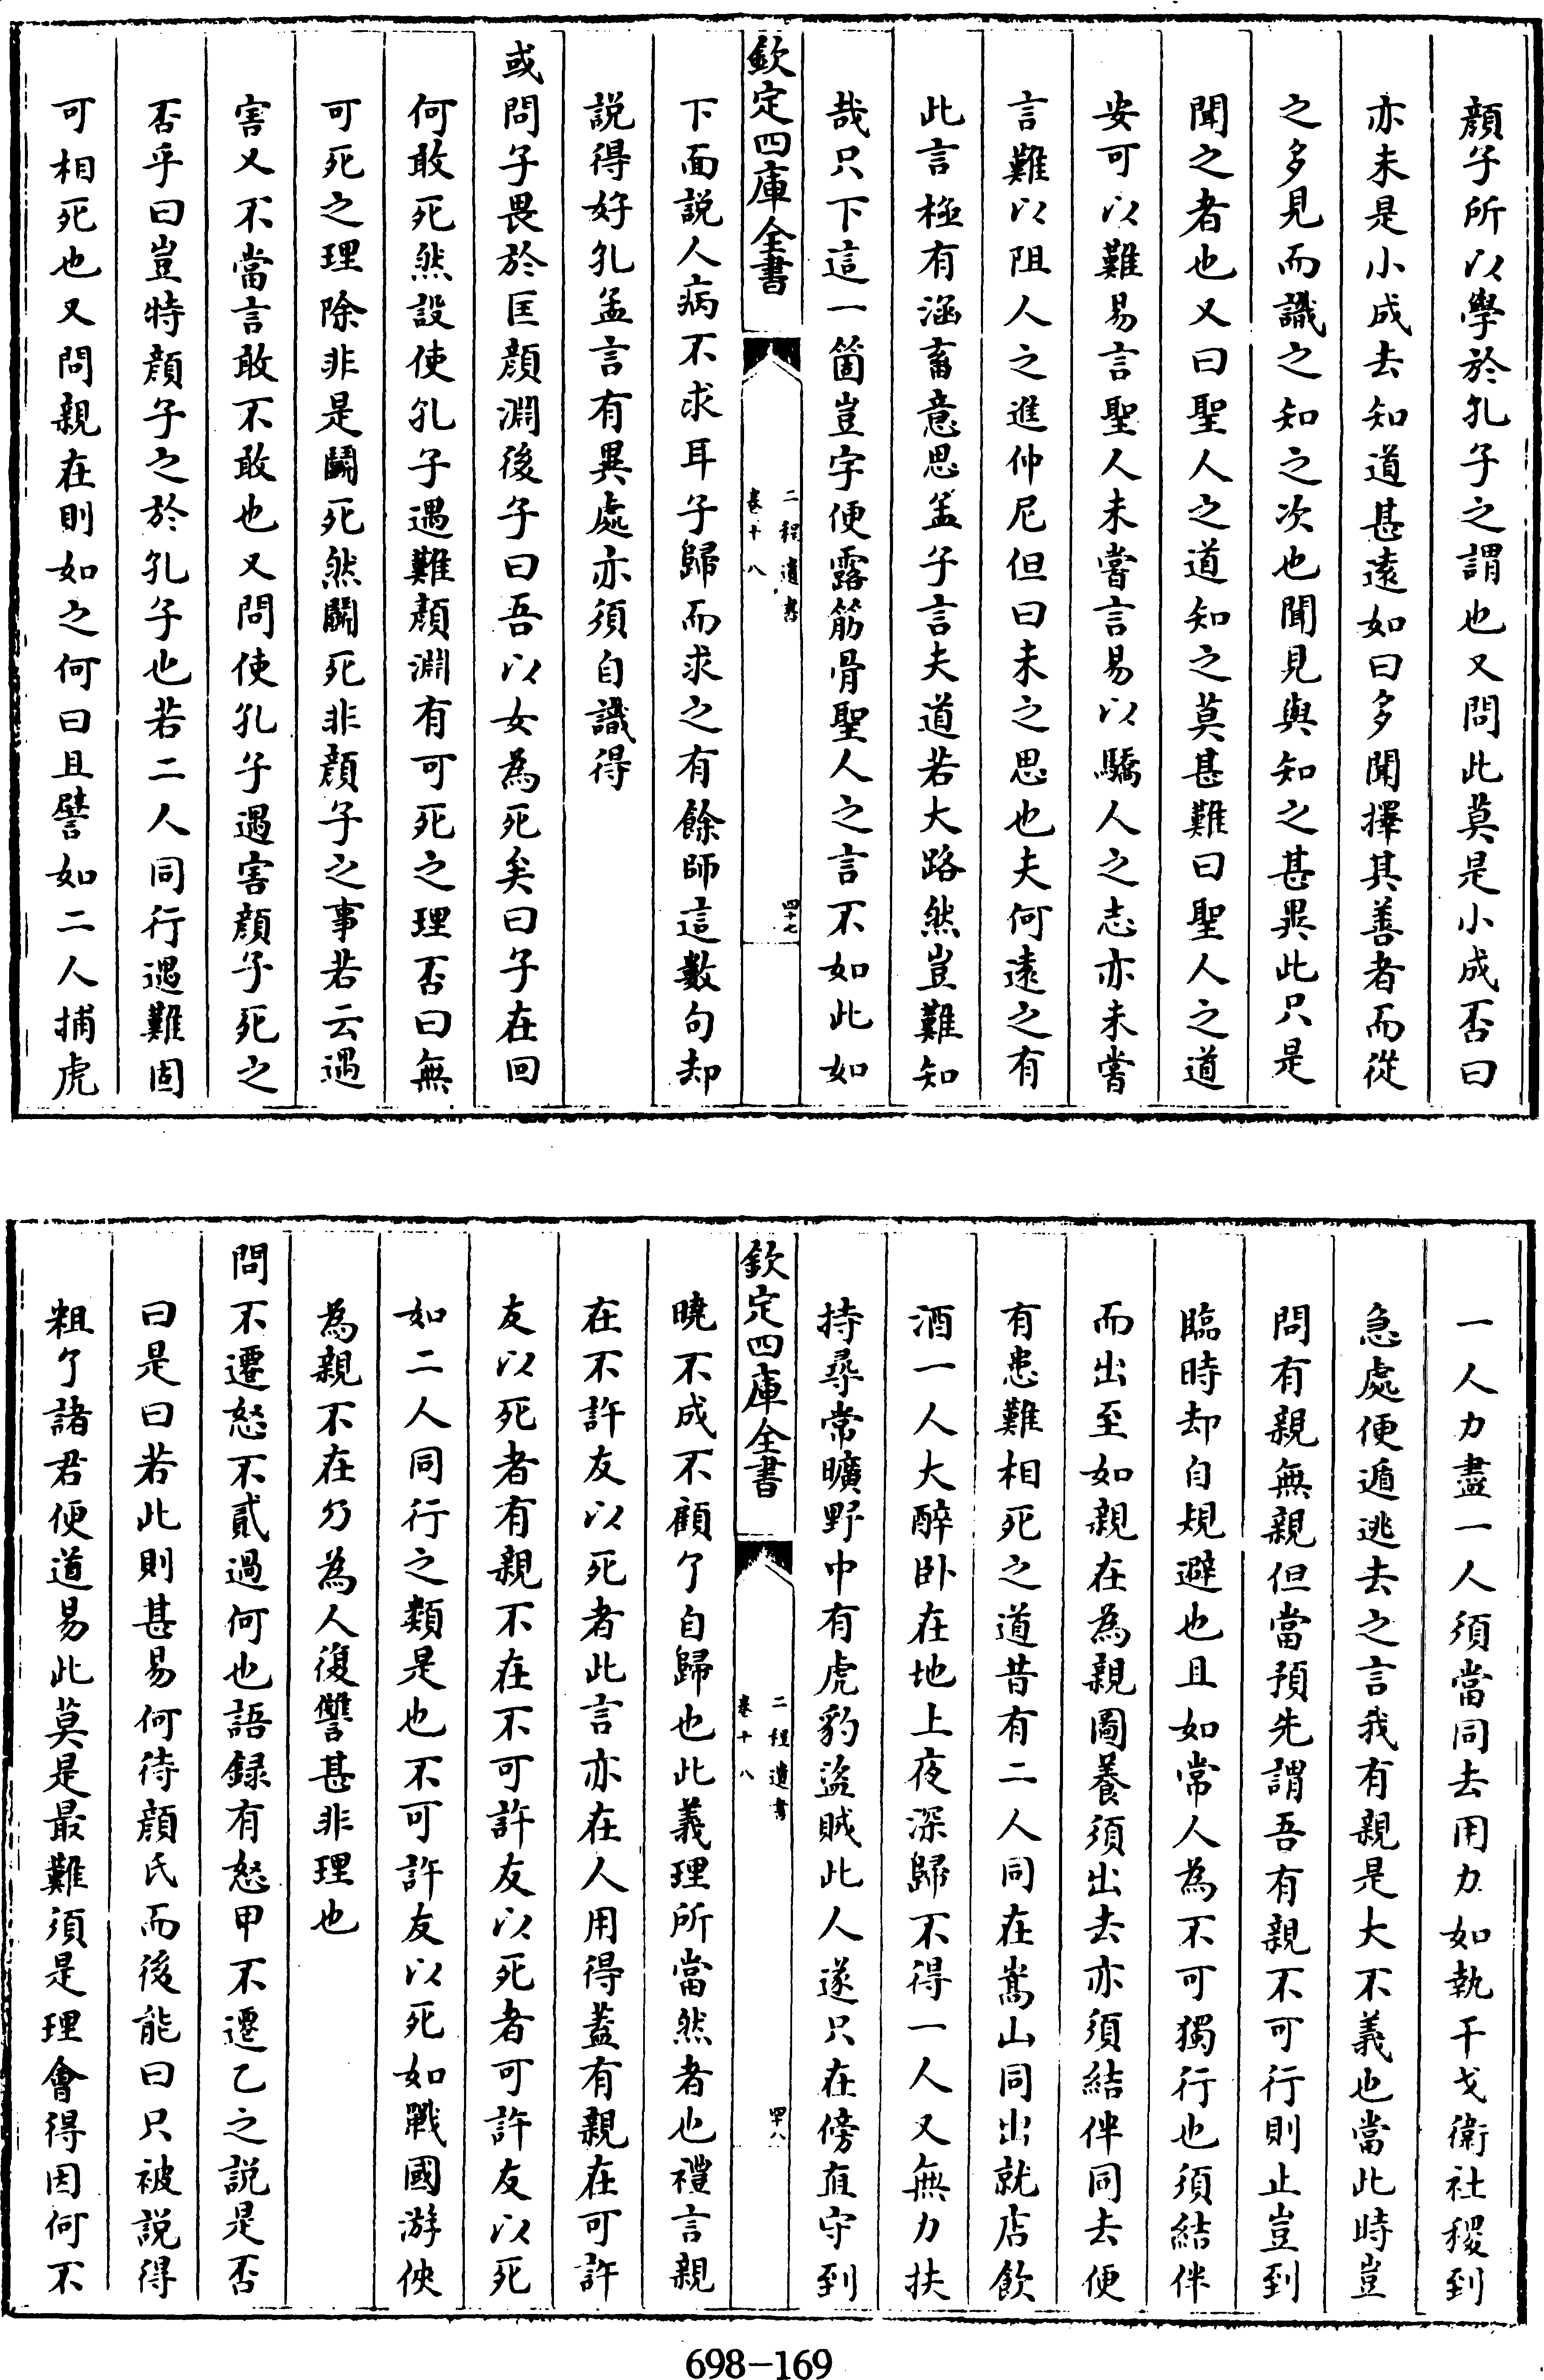 顔子所以學於孔子之謂也又問此莫是小成否曰
亦未是小成去知道甚遠如曰多聞擇其善者而從
之多見而識之知之次也聞見與知之甚異此只是
聞之者也又曰聖人之道知之莫甚難曰聖人之道
安可以難易言聖人未嘗言易以驕人之志亦未嘗
言難以阻人之進仲尼但曰未之思也夫何遠之有
此言極有涵畜意思孟子言夫道若大路然豈難知
哉只下這一箇豈字便露筋骨聖人之言不如此如
欽定四庫全書
二程遺書
卷十八
四十七
下面説人病不求耳子歸而求之有餘師這數句却
説得好孔孟言有異處亦須自識得
或問子畏於匡顔淵後子曰吾以女為死矣曰子在回
何敢死然設使孔子遇難顔淵有可死之理否曰無
可死之理除非是鬬死然鬬死非顔子之事若云遇
害又不當言敢不敢也又問使孔子遇害顔子死之
否乎曰豈特顔子之於孔子也若二人同行遇難固
可相死也又問親在則如之何曰且譬如二人捕虎
一人力盡一人須當同去用力如執干戈衛社稷到
急處便遁逃去之言我有親是大不義也當此時豈
問有親無親但當預先謂吾有親不可行則止豈到
臨時却自規避也且如常人為不可獨行也須結伴
而出至如親在為親圖養須出去亦須結伴同去便
有患難相死之道昔有二人同在嵩山同出就店飲
酒一人大醉卧在地上夜深歸不得一人又無力扶
持尋常曠野中有虎豹盜賊此人遂只在傍直守到
欽定四庫全書
二程遺書
卷十八
四十八
曉不成不顧了自歸也此義理所當然者也禮言親
在不許友以死者此言亦在人用得蓋有親在可許
友以死者有親不在不可許友以死者可許友以死
如二人同行之類是也不可許友以死如戰國游俠
為親不在乃為人復讐甚非理也
問不遷怒不貳過何也語録有怒甲不遷乙之説是否
曰是曰若此則甚易何待顔氏而後能曰只被説得
粗了諸君便道易此莫是最難須是理會得因何不
698-169